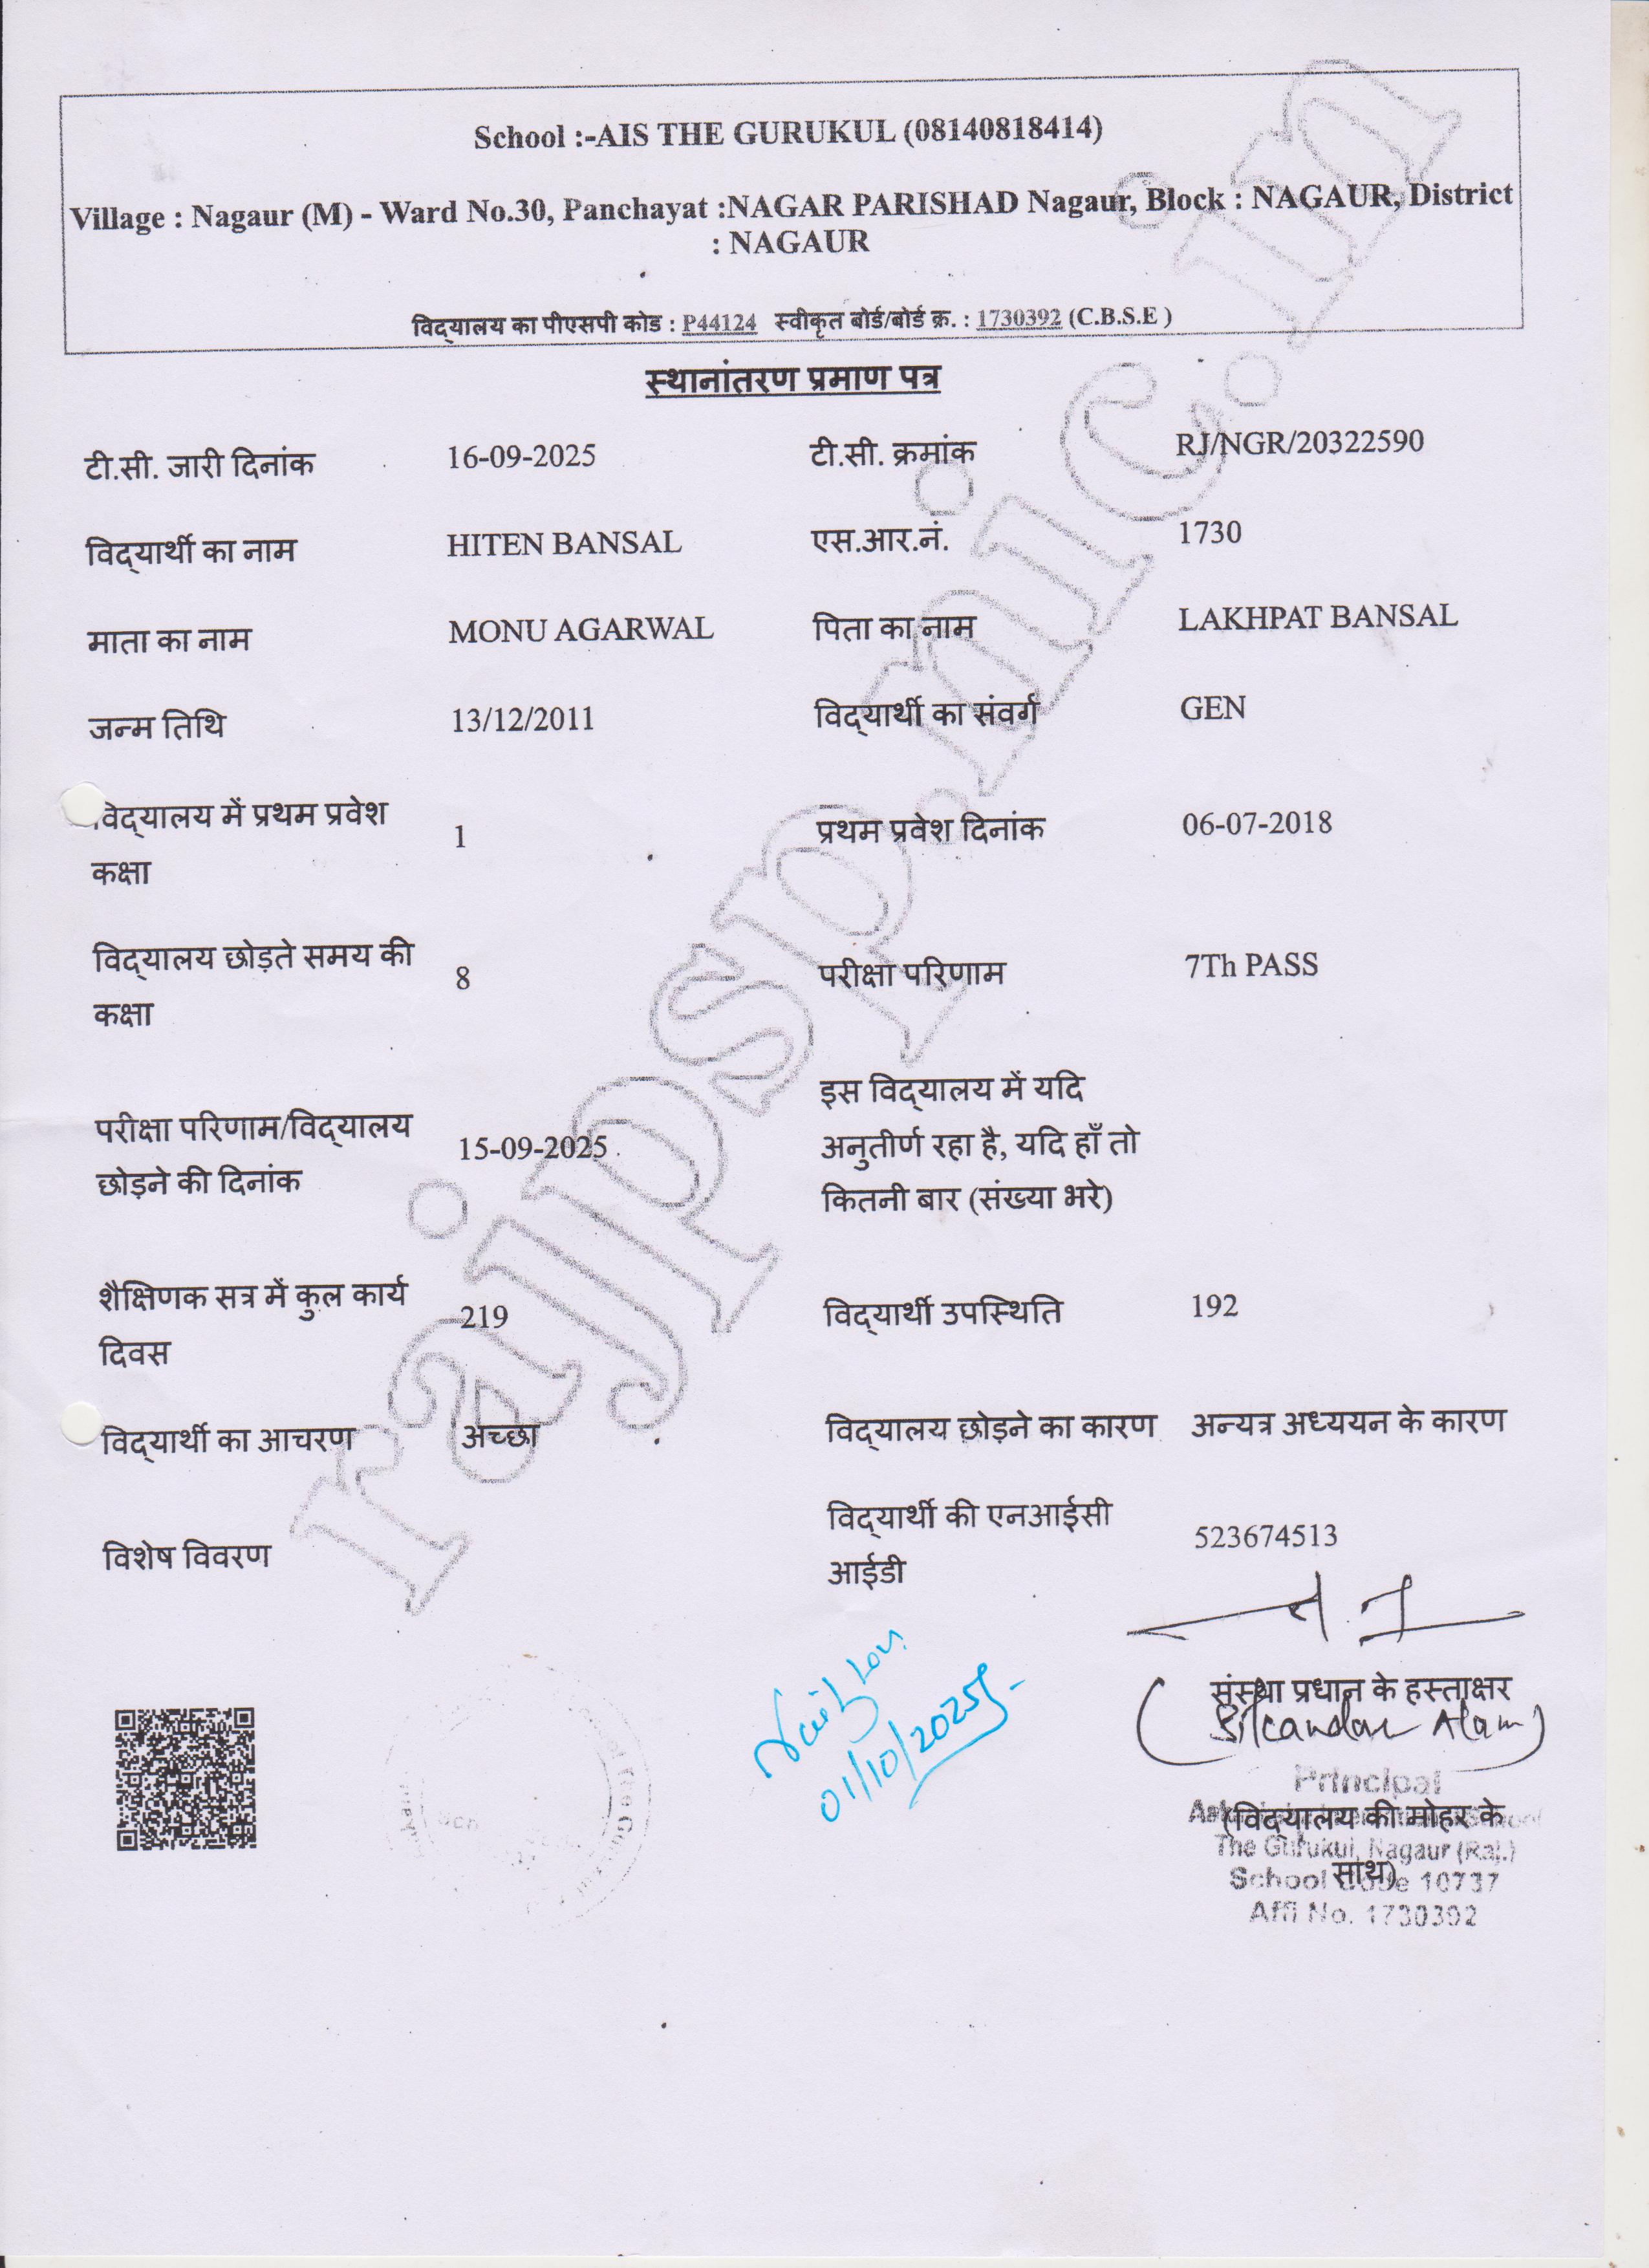 School :-AIS THE GURUKUL (08140818414)
Village : Nagaur (M) - Ward No.30, Panchayat :NAGAR PARISHAD Nagaur, Block : NAGAUR, District
: NAGAUR
विद्यालय का पीएसपी कोड : P44124 स्वीकृत बोर्ड/बोर्ड क्र. : 1730392 (C.B.S.E )
स्थानांतरण प्रमाण पत्र
टी.सी. जारी दिनांक 16-09-2025 टी.सी. क्रमांक RJ/NGR/20322590
विद्यार्थी का नाम HITEN BANSAL एस.आर.नं. 1730
माता का नाम MONU AGARWAL पिता का नाम LAKHPAT BANSAL
जन्म तिथि 13/12/2011 विद्यार्थी का संवर्ग GEN
विद्यालय में प्रथम प्रवेश
कक्षा
1
प्रथम प्रवेश दिनांक 06-07-2018
विद्यालय छोड़ते समय की
कक्षा
8
परीक्षा परिणाम 7Th PASS
परीक्षा परिणाम/विद्यालय
छोड़ने की दिनांक
15-09-2025
इस विद्यालय में यदि
अनुतीर्ण रहा है, यदि हाँ तो
कितनी बार (संख्या भरे)
शैक्षिणक सत्र में कुल कार्य
दिवस
219
विद्यार्थी उपस्थिति 192
विद्यार्थी का आचरण अच्छा विद्यालय छोड़ने का कारण अन्यत्र अध्ययन के कारण
विशेष विवरण
विद्यार्थी की एनआईसी
आईडी
523674513
rajpsp.nic.in
01/10/2025
संस्था प्रधान के हस्ताक्षर
(Sikandar Alam)
Principal
(विद्यालय की मोहर के
The Gurukul, Nagaur (Raj.)
साथ)
School Code 10737
Affi No. 1730392
The Guruku